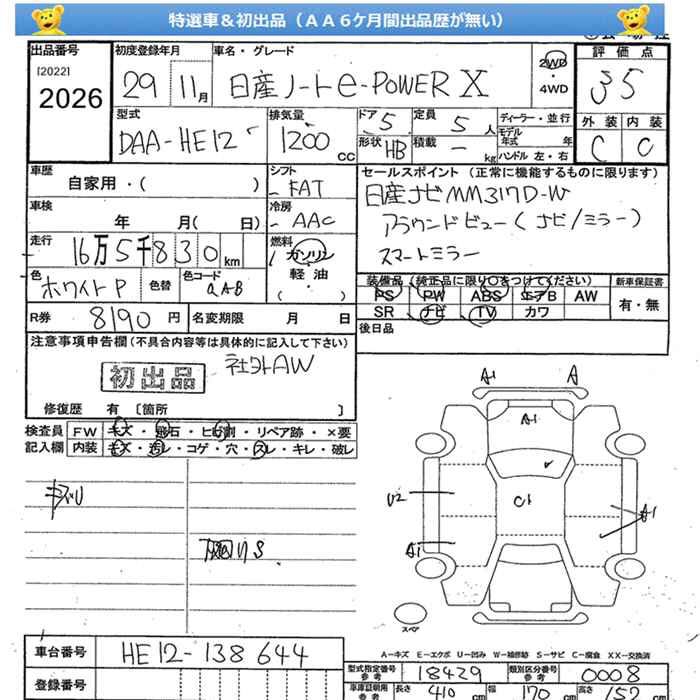 特選車&初出品(AA6ケ月間出品歴が無い)
出品番号 初度登録年月 車名・グレード 2WD・4WD 評価点
[2022]
2026 29 11月 日産ノートe-POWER X 35
型式 排気量 ドア 5 定員 5人 ディーラー・並行 外装 内装
DAA-HE12 1200CC 形状 HB 積載 - kg モデル年式 年 ハンドル 左・右 C C
車歴 自家用・( ) シフト FAT セールスポイント(正常に機能するものに限ります)
車検 年 月(日) 冷房 AAC 日産ナビMM317D-W
走行 16万5千830km 燃料 ガソリン・軽油・( ) アラウンドビュー(ナビ/ミラー)
スマートミラー
色 ホワイトP 色替 色コード QAB 装備品(純正品に限り○をつけてください) 新車保証書
PS PW ABS エアB AW 有・無
R券 8190円 名変期限 月 日 SR ナビ TV カワ
注意事項申告欄(不具合内容等は具体的に記入して下さい) 後日品
社外AW
初出品
修復歴 有 [箇所 ]
検査員 FW キズ・飛石・ヒビ割・リペア跡・×要
記入欄 内装 キズ・汚レ・コゲ・穴・スレ・キレ・破レ
A1 A
A1
U2 C1 A1
A1
スペア
A-キズ E-エクボ U-凹み W-補修跡 S-サビ C-腐食 XX-交換済
車台番号 HE12-138644 型式指定番号 参考 18429 類別区分番号 参考 0008
登録番号 車庫証明用 参考 長さ 410cm 幅 170cm 高さ